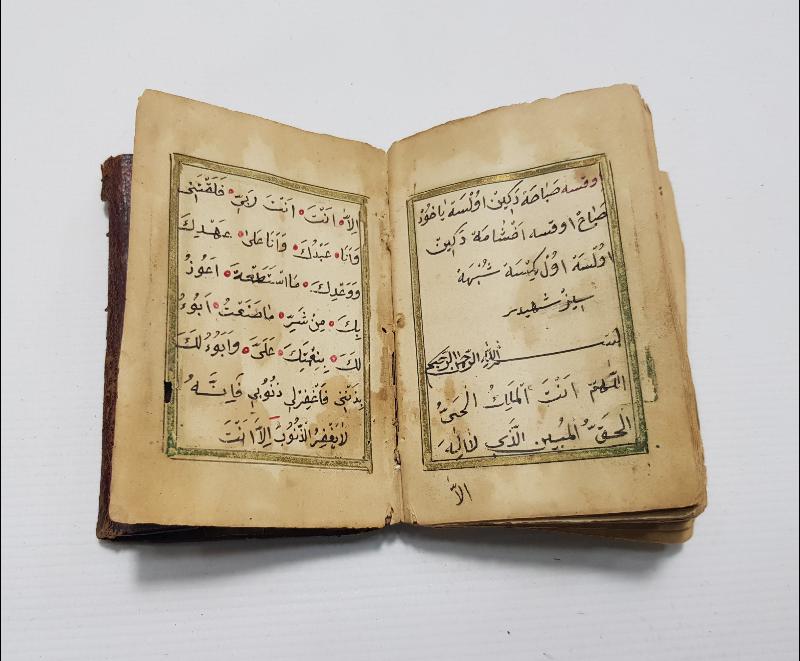 اوقسه صباحه دكين اولسه ياخود
صباح اوقسه اخشامه دكين
اولسه اول كسه شبهه
سز شهيدر
بسم الله الرحمن الرحيم
اللهم انت الملك الحى
الحق المبين الذي لا اله
الا
الا انت انت ربى خلقتنى
وانا عبدك وانا على عهدك
ووعدك ما استطعة اعوذ
بك من شر ما صنعت ابوء
لك بنعمتك على وابوء لك
بذنبى فاغفرلى ذنوبى فانه
لا يغفر الذنوب الا انت